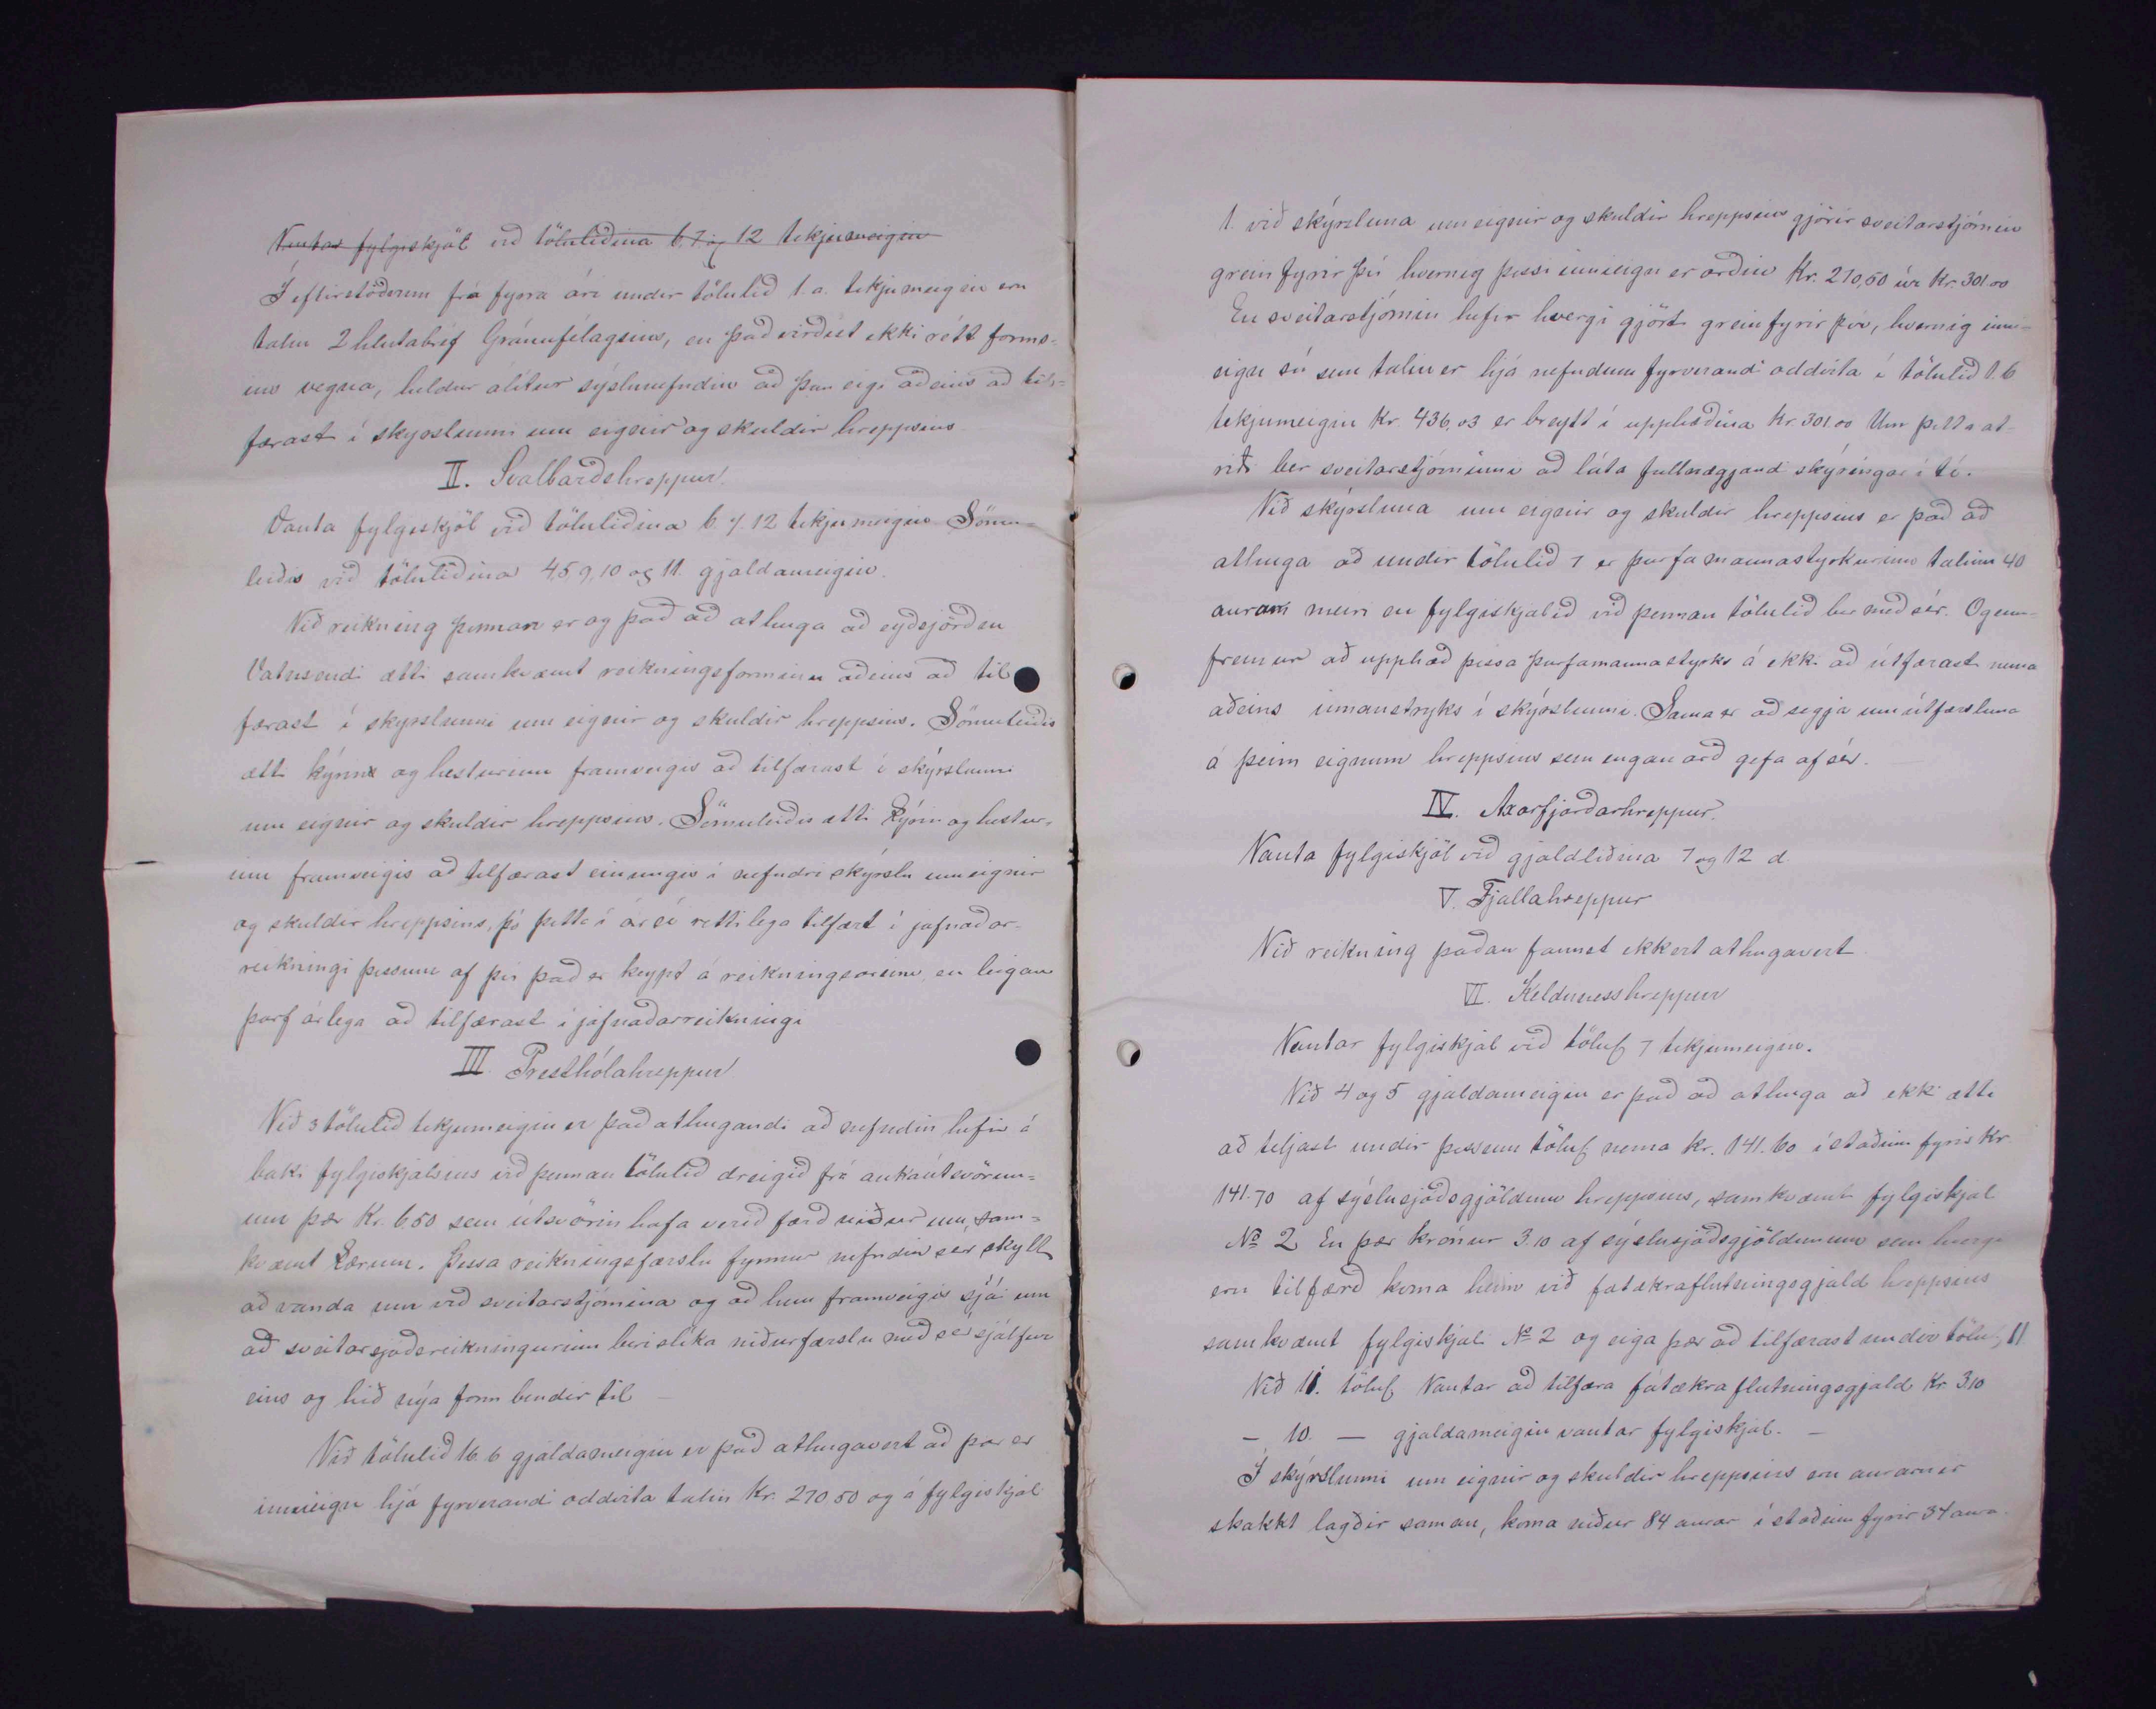 Vantar fylgiskjöl við töluliðina 6. 7 og 12 tekjumeigin
Í eftirstöðvum frá fyrra ári undir tölulið 1.a. tekjumeigin eru
talin 2 hlutabréf Gránufélagsins, en það virðist ekki rétt forms-
ins vegna, heldur álítur sýslunefndin að þau eigi aðeins að til-
færast í skýrslunni um eignir og skuldir hreppsins
II. Svalbarðshreppur.
Vanta fylgiskjöl við töluliðina 6. 7. 12 tekjumeigin Sömu-
leiðis við töluliðina 4,5,9,10 og 11. gjaldameigin.
Við reikning þennan er og það að athuga að eyðijörðin
Vatnsendi ætti samkvæmt reikningsforminu aðeins að til
færast í skýrslunni um eignir og skuldir hreppsins. Sömuleiðis
ætti kýrin og hesturinn framveigis að tilfærast í skýrslunni
um eignir og skuldir hreppsins. Sömuleiðis ætti kýrin og hestur-
inn framveigis að tilfærast einungis í nefndri skýrslu um eignir
og skuldir hreppsins, þó þetta í ár sé réttilega tilfært í jafnaðar-
reikningi þessum af því það er keypt á reikningsárinu, en leigan
þarf árlega að tilfærast í jafnaðarreikningi
III. Presthólahreppur.
Við 3 tölulið tekjumeigin er það athugandi að nefndin hefir á
baki fylgiskjalsins við þennan tölulið dreigið frá aukaútsvörun-
um þær Kr. 6.50 sem útsvörin hafa verið færð niður um, sam-
kvæmt kærum. Þessa reikningsfærslu fynnur nefndin sér skylt
að vanda um við sveitarstjórnina og að hún framveigis sjái um
að sveitarsjóðsreikningurinn beri slíka niðurfærslu með sér sjálfur
eins og hið nýja form bendir til –
Við tölulið 16.6 gjaldameigin er það athugavert að þar er
inneign hjá fyrverandi oddvita talin Kr. 270.50 og á fylgiskjal
1. við skýrsluna um eignir og skuldir hreppsins gjörir sveitarstjórnin
grein fyrir því hvernig þessi inneign er orðin Kr. 210,50 úr Kr. 301.00
En sveitarstjórnin hefir hvergi gjört grein fyrir því, hvernig inn-
eign sú sem talin er hjá nefndum fyrverandi oddvita í tölulið 1.b
tekjumeigin Kr. 436,03 er breytt í upphæðina Kr. 301.00 Um þetta at-
riði ber sveitarstjórninni að láta fullnægjandi skýringar í té.
Við skýrsluna um eignir og skuldir hreppsins er það að
athuga að undir tölulið 7 er þurfamannastyrkurinn talinn 40
aurum meiri en fylgiskjalið við þennan tölulið ber með sér. Og enn-
fremur að upphæð þessa þurfamannastyrks á ekki að útfærast nema
aðeins innanstryks í skýrslunni. Sama er að segja um útfærsluna
á þeim eignum hreppsins sem engan arð gefa af sér. –
IV. Axarfjarðarhreppur.
Vanta fylgiskjöl við gjaldliðina 7 og 12 d.
V. Fjallahreppur
Við reikning þaðan fannst ekkert athugavert
VI. Kelduneshreppur
Vantar fylgiskjal við tölul. 7 tekjumeigin.
Við 4 og 5 gjaldameigin er það að athuga að ekki ætti
að teljast undir þessum tölul. nema Kr. 141.60 í staðinn fyrir Kr
141.70 af sýslusjóðsgjöldum hreppsins, samkvæmt fylgiskjal
No 2 En þær krónur 3.10 af sýslusjóðsgjöldunum sem hvergi
eru tilfærð koma heim við fátækraflutningsgjald hreppsins
samkvæmt fylgiskjali No 2 og eiga þær að tilfærast undir tölul. 11
Við 11. tölul. Vantar að tilfæra fátækraflutningsgjald Kr 3.10
– 10. — gjaldameigin vantar fylgiskjal. –
Í skýrslunni um eignir og skuldir hreppsins eru aurarnir
skakkt lagðir saman, koma niður 84 aurar í staðinn fyrir 34 aura.